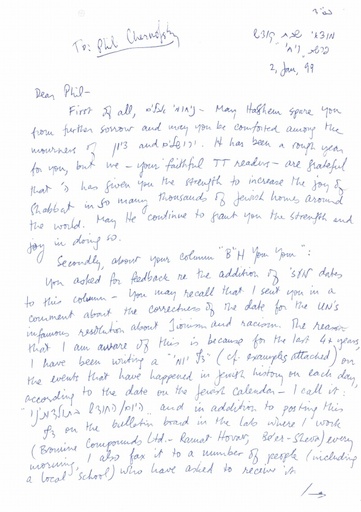 בס"ד
To: Phil Chernofsky
מוצאי שבת קודש
פרשת ויחי
2, Jan, 99
Dear Phil-
First of all, - May Hashem spare you
from further sorrow and may you be comforted among the
mourners of ציון and ירושלים. It has been a rough year
for you, but we - your faithful TT readers - are grateful
that 'ה has given you the strength to increase the joy of
Shabbat in so many thousands of Jewish homes around
the world. May He continue to grant you the strength and
joy in doing so.
Secondly, about your column "B"H Yom Yom":
You asked for feedback re the addition of dates
to this column - You may recall that I sent you in a
comment about the correctness of the date for the UN's
infamous resolution about Zionism and racism. The reason
that I am aware of this is because for the last 4+ years,
I have been writing a (cf. examples attached) on
the events that have happened in Jewish history on each day,
according to the date on the Jewish Calendar - I call it:
and in addition to posting this
on the bulletin board in the lab where I work
(Bromine Compounds Ltd. - Ramat Hovav, Be'er-Sheva) every
morning, I also fax it to a number of people (including
a local school) who have asked to receive it.